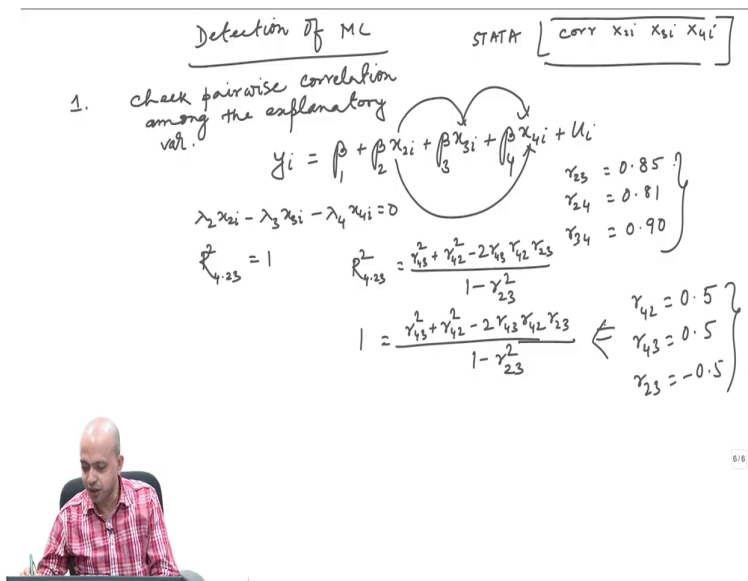 Detection of MC
STATA [corr x2i x3i x4i]
1. check pairwise correlation
among the explanatory
var.
yi = β1 + β2 x2i + β3 x3i + β4 x4i + ui
r23 = 0.85
r24 = 0.81
r34 = 0.90
λ2 x2i - λ3 x3i - λ4 x4i = 0
R²4.23 = 1
R²4.23 = (r²43 + r²42 - 2 r43 r42 r23) / (1 - r²23)
1 = (r²43 + r²42 - 2 r43 r42 r23) / (1 - r²23) ⇐
r42 = 0.5
r43 = 0.5
r23 = -0.5
6/6